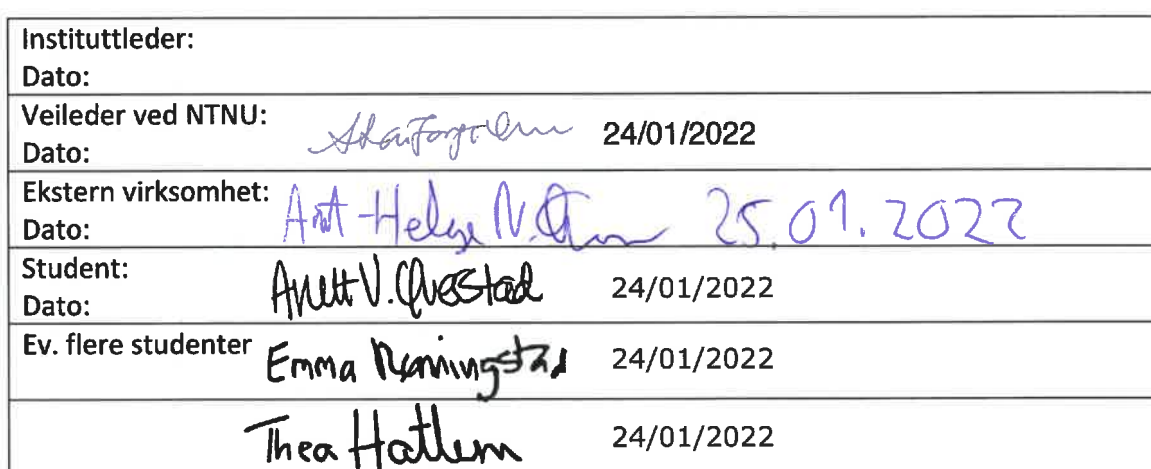 Instituttleder:
Dato:
Veileder ved NTNU:
24/01/2022
Dato:
Ekstern virksomhet:
Arnt-Helge N. 25.01.2022
Dato:
Student:
Anett V. 24/01/2022
Dato:
Ev. flere studenter Emma 24/01/2022
Thea Hatlem 24/01/2022